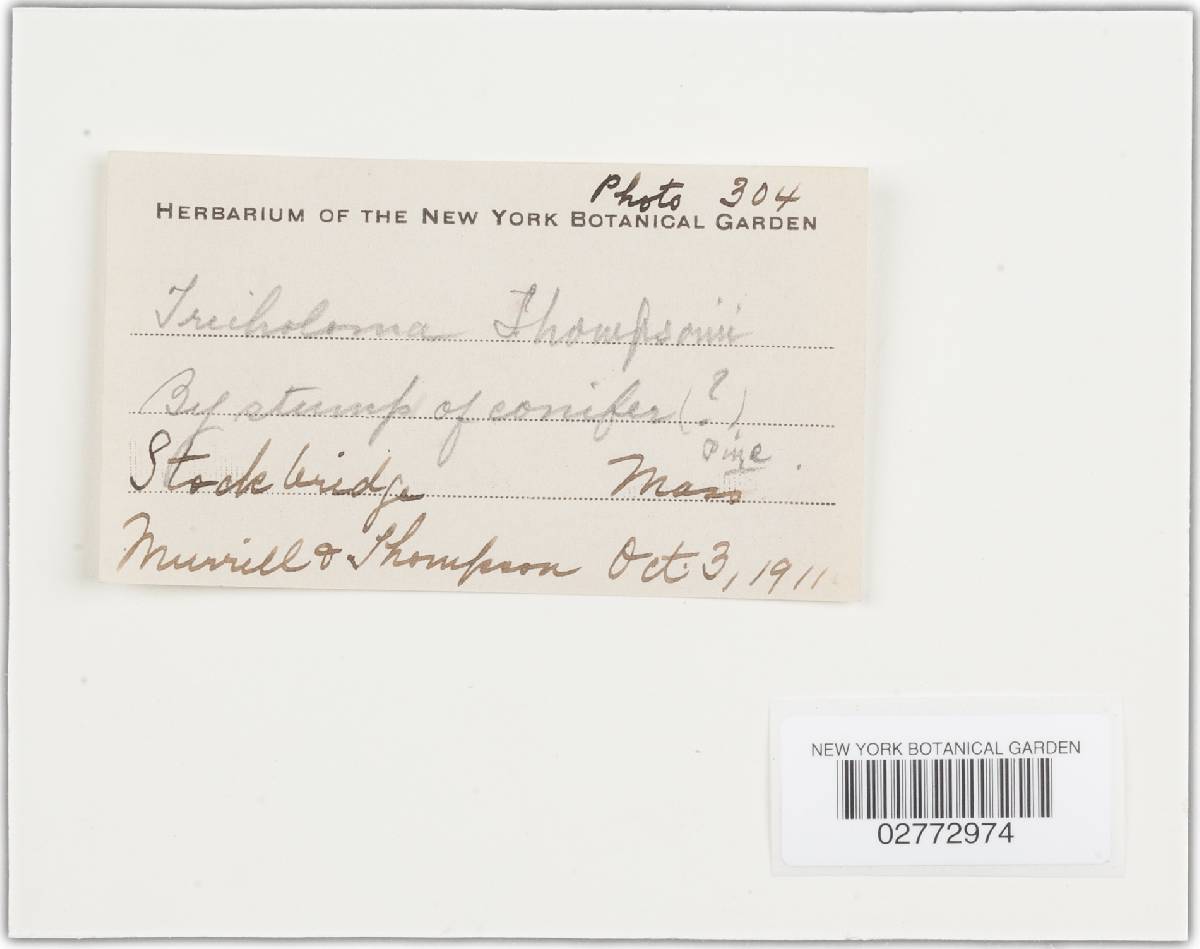 Photo 304
HERBARIUM OF THE NEW YORK BOTANICAL GARDEN
Tricholoma Thompsonii
By stump of conifer (?)
Pine
Stockbridge Mass
Murrill & Thompson Oct. 3, 1911
NEW YORK BOTANICAL GARDEN
02772974